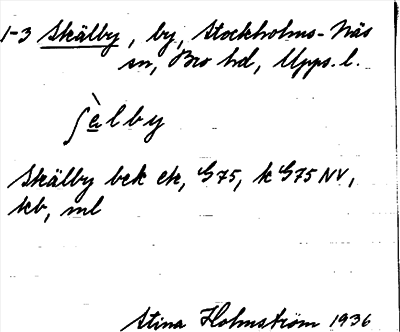 1-3 Skälby, by, Stockholms-Näs
sn, Bro hd, Upps. l.
ʃὰlby
Skälby bek ek, G75, k G75 NV,
kb, ml
Stina Holmström 1936